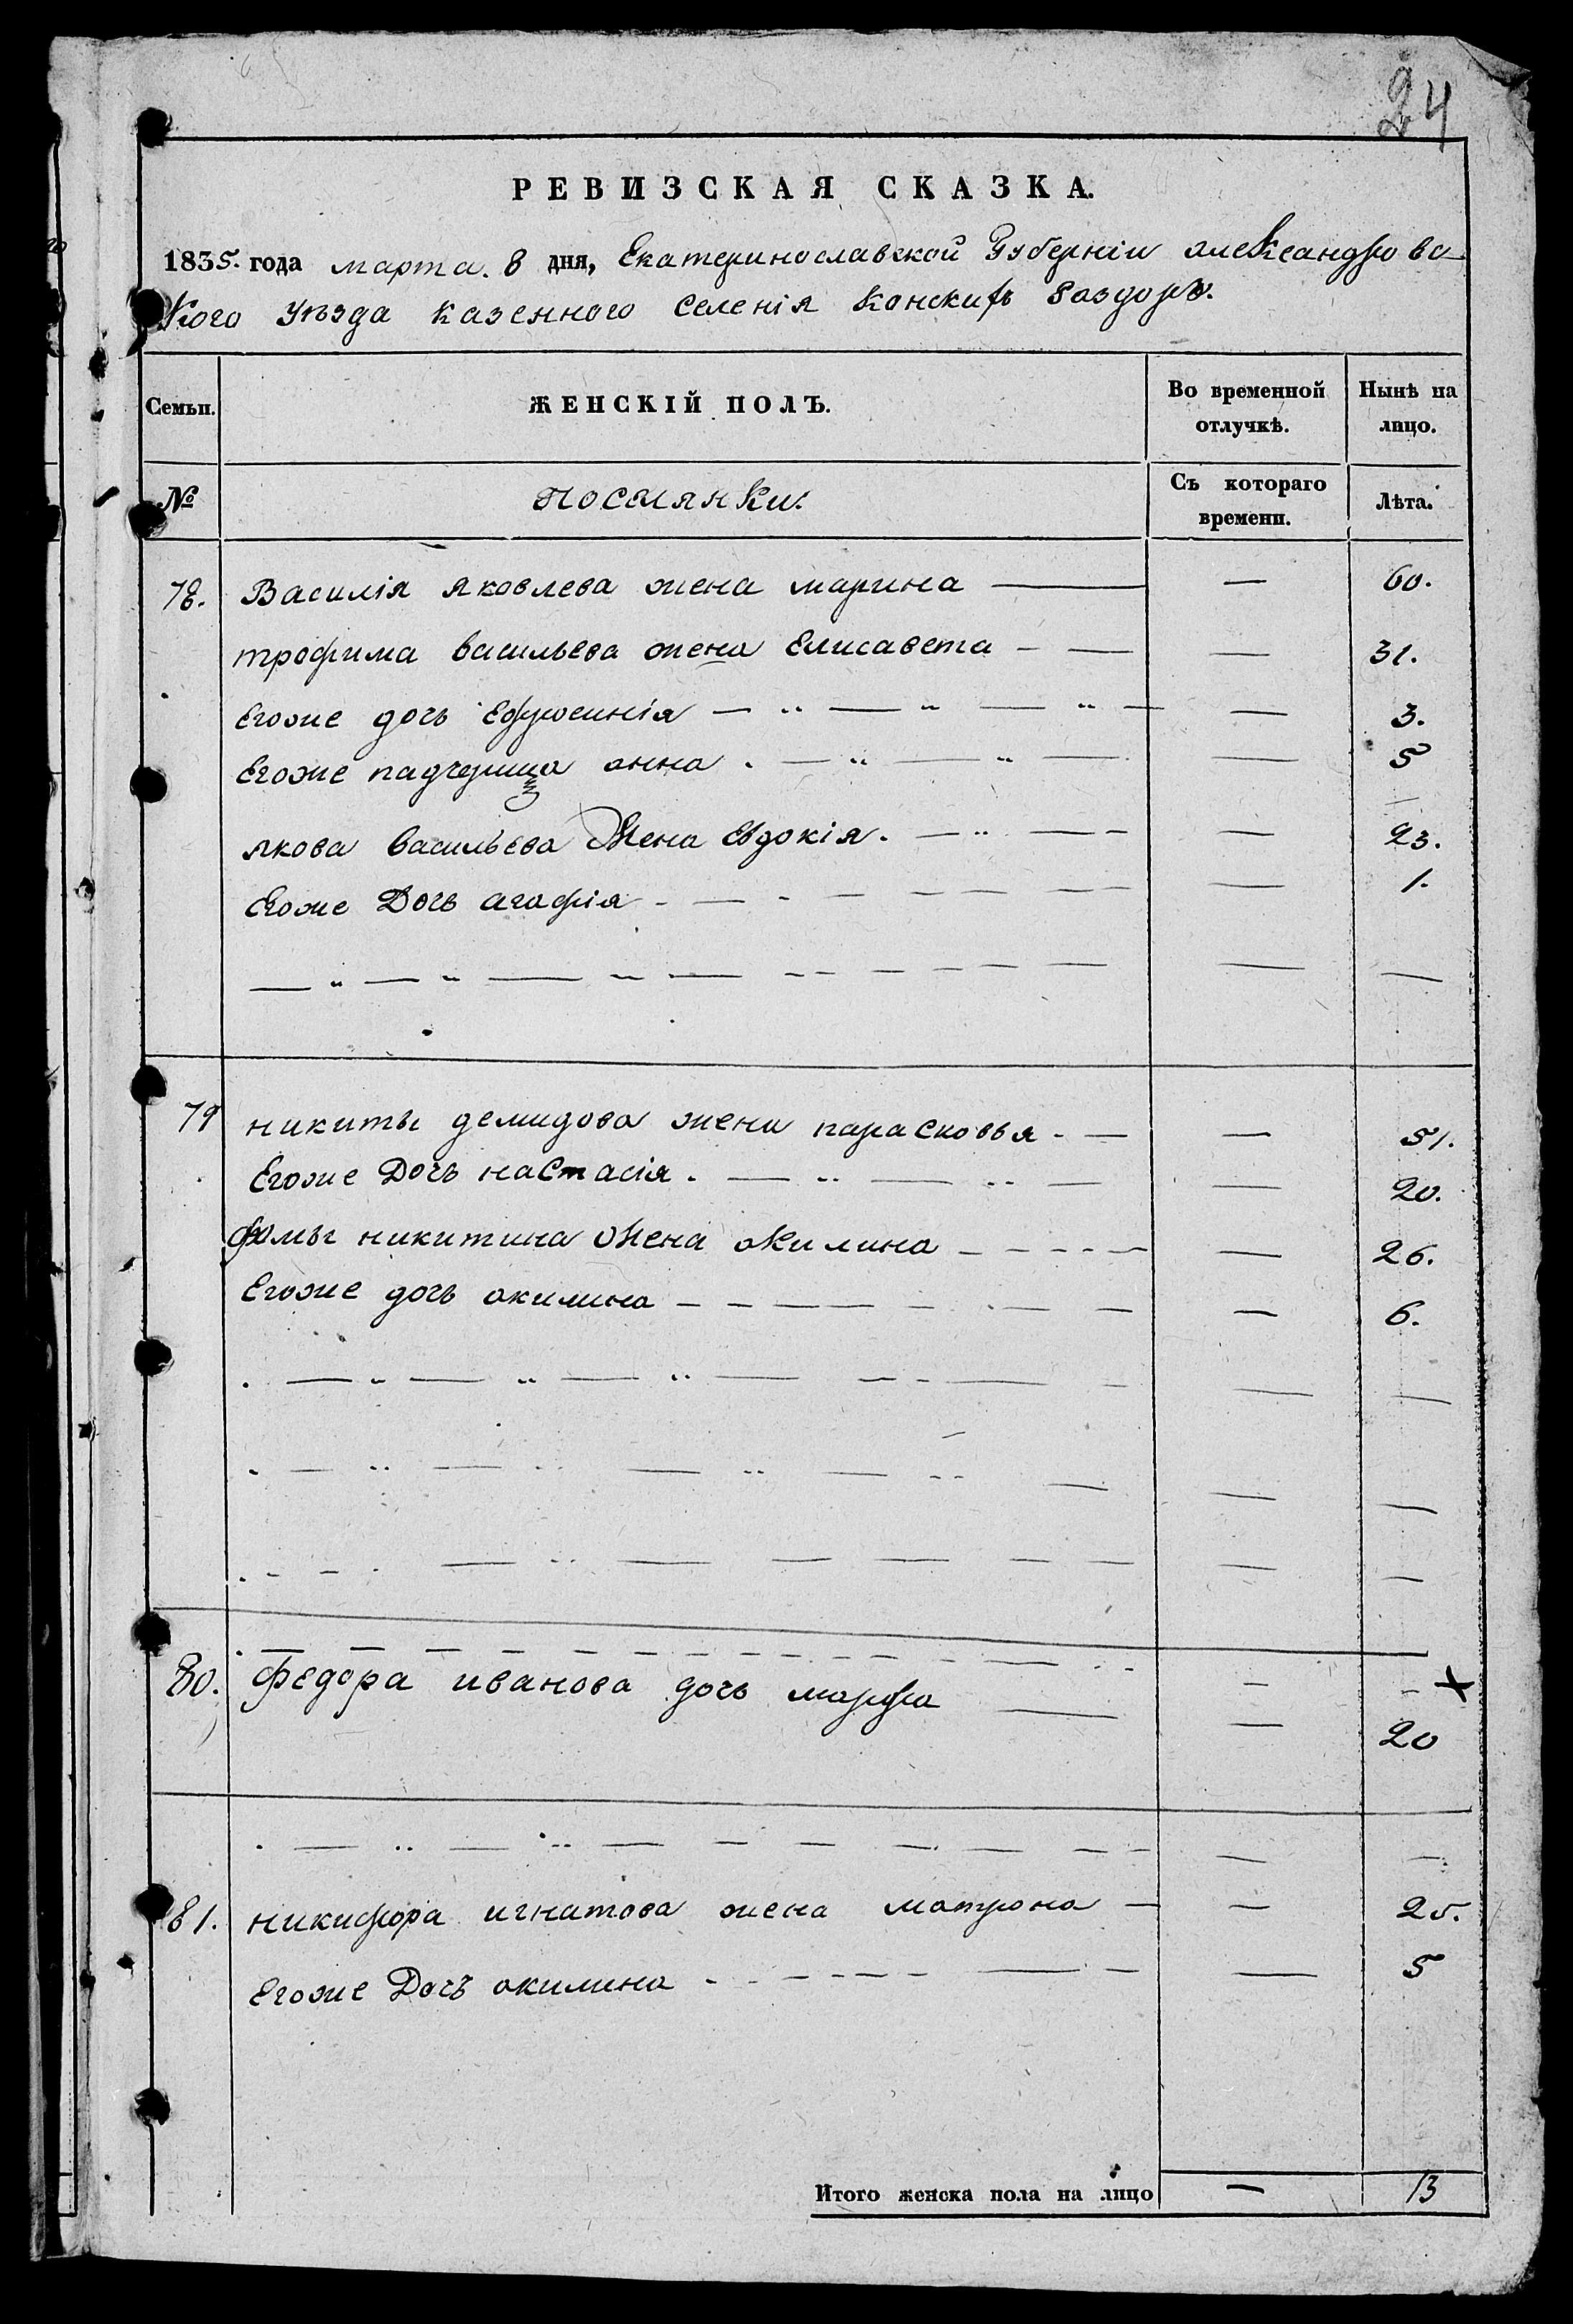 24
РЕВИЗСКАЯ СКАЗКА.
1835. года марта. 8 дня, Екатеринославской Губерніи александровс
кого Уѣзда казенного селенія конскихъ Раздоръ.
Семьи. ЖЕНСКІЙ ПОЛЪ. Во временной отлучкѣ. Нынѣ на лицо.
№ поселянки. Съ котораго времени. Лѣта.
78. Василія яковлева жена марина — — 60.
трофима васильева жена Елисавета — — 31.
Егоже дочь Ефросинія — — 3.
Егоже падчерица анна — — 5
якова васильева Жена евдокія. — — 23.
Егоже Дочь агафія — — 1.
79 никиты демидова жена парасковья — — 51.
Егоже Дочь настасія. — — 20.
фомы никитина Жена акилина — — 26.
Егоже дочь акилина — — 6.
80. федора иванова дочь марфа — — 20
х
81. никифора игнатова жена матрона — — 25.
Егоже Дочь акилина — — 5
Итого женска пола на лицо — 13